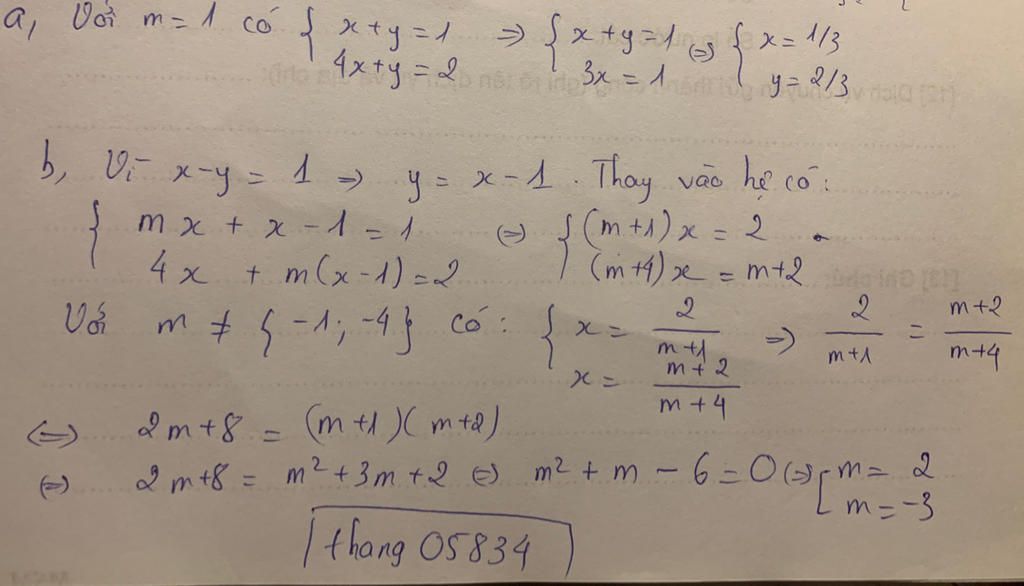 a, Với m = 1 có { x+y = 1 ⇒ { x+y = 1 ⇔ { x = 1/3
4x+y = 2 3x = 1 y = 2/3
b, Vì x-y = 1 ⇒ y = x - 1. Thay vào hệ có:
{ mx + x - 1 = 1 ⇔ { (m+1)x = 2
4x + m(x-1) = 2 (m+4)x = m+2
Với m ≠ {-1; -4} có: { x = 2/(m+1) ⇒ 2/(m+1) = (m+2)/(m+4)
x = (m+2)/(m+4)
⇔ 2m+8 = (m+1)(m+2)
⇔ 2m+8 = m² + 3m + 2 ⇔ m² + m - 6 = 0 ⇔ [ m = 2
m = -3
thang 05834